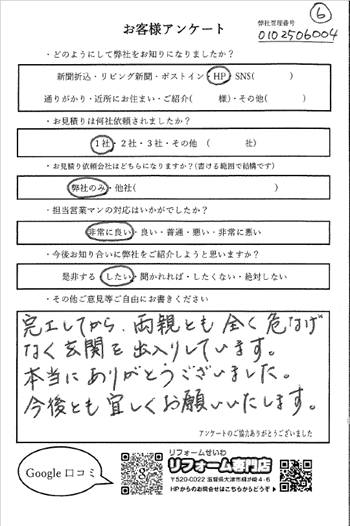 ⑥
弊社管理番号
0102506004
お客様アンケート
・どのようにして弊社をお知りになりましたか？
新聞折込・リビング新聞・ポストイン・HP・SNS(　　　)
通りがかり・近所にお住まい・ご紹介(　　　様)・その他(　　　)
・お見積りは何社依頼されましたか？
1社・2社・3社・その他 (　　　社)
・お見積り依頼会社はどちらになりますか？(書ける範囲で結構です)
弊社のみ・他社(　　　)
・担当営業マンの対応はいかがでしたか？
非常に良い・良い・普通・悪い・非常に悪い
・今後お知り合いに弊社をご紹介しようと思いますか？
是非する・したい・聞かれれば・したくない・絶対しない
・その他ご意見等ご自由にお書きください
完工してから、両親とも全く危なげ
なく玄関を出入りしています。
本当にありがとうございました。
今後とも宜しくお願いいたします。
アンケートのご協力ありがとうございました
Google 口コミ
リフォームせいわ
リフォーム専門店
〒520-0022 滋賀県大津市柳が崎4-6
HPからのお問合せはこちらからどうぞ